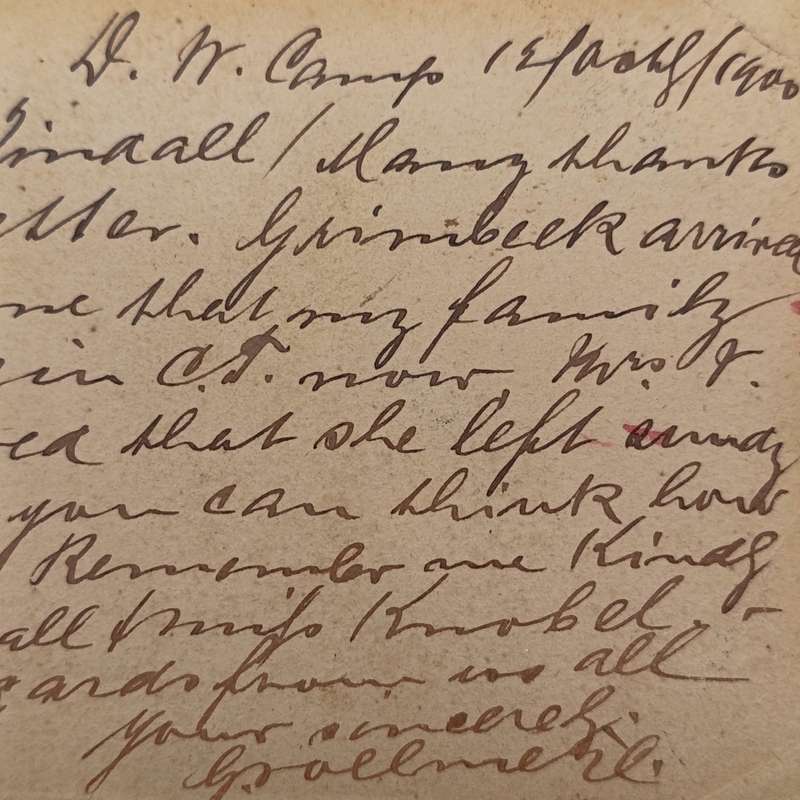 D. W. Camp 12/Octb/1900
indall / Many thanks
etter. Grimbeek arrived
me that my family
in C.T. now. Mrs V.
ed that she left
you can think how
Remember me kindly
all & Miss Knobel. -
gards from us all
your sincerely.